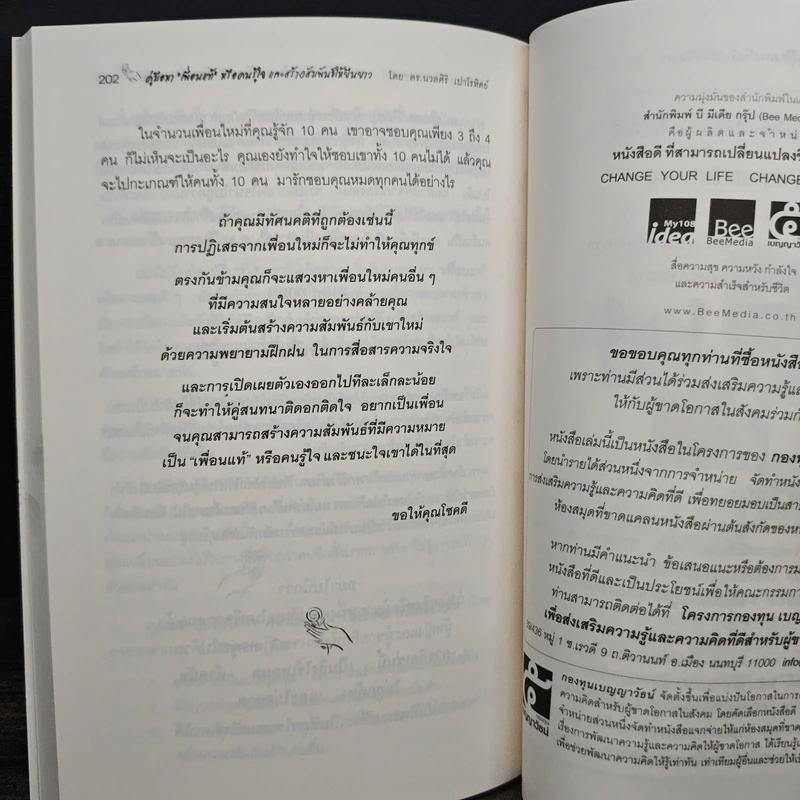 202 คู่มือหา "เพื่อนแท้" หรือคนรู้ใจ และสร้างสัมพันธ์ให้ยืนยาว โดย ดร.นวลศิริ เปาโรหิตย์
ในจำนวนเพื่อนใหม่ที่คุณรู้จัก 10 คน เขาอาจชอบคุณเพียง 3 ถึง 4
คน ก็ไม่เห็นจะเป็นอะไร คุณเองยังทำใจให้ชอบเขาทั้ง 10 คนไม่ได้ แล้วคุณ
จะไปกะเกณฑ์ให้คนทั้ง 10 คน มารักชอบคุณหมดทุกคนได้อย่างไร
ถ้าคุณมีทัศนคติที่ถูกต้องเช่นนี้
การปฏิเสธจากเพื่อนใหม่ก็จะไม่ทำให้คุณทุกข์
ตรงกันข้ามคุณก็จะแสวงหาเพื่อนใหม่คนอื่น ๆ
ที่มีความสนใจหลายอย่างคล้ายคุณ
และเริ่มต้นสร้างความสัมพันธ์กับเขาใหม่
ด้วยความพยายามฝึกฝน ในการสื่อสารความจริงใจ
และการเปิดเผยตัวเองออกไปทีละเล็กละน้อย
ก็จะทำให้คู่สนทนาติดอกติดใจ อยากเป็นเพื่อน
จนคุณสามารถสร้างความสัมพันธ์ที่มีความหมาย
เป็น "เพื่อนแท้" หรือคนรู้ใจ และชนะใจเขาได้ในที่สุด
ขอให้คุณโชคดี
ความมุ่งมั่นของสำนักพิมพ์ใน
สำนักพิมพ์ บี มีเดีย กรุ๊ป (Bee Me
คือผู้ผลิตและจำหน่
หนังสือดี ที่สามารถเปลี่ยนแปลงชี
CHANGE YOUR LIFE CHANGE
My108 idea
Bee BeeMedia
เบญญา
สื่อความสุข ความหวัง กำลังใจ
และความสำเร็จสำหรับชีวิต
www.BeeMedia.co.th
ขอขอบคุณทุกท่านที่ซื้อหนังสือ
เพราะท่านมีส่วนได้ร่วมส่งเสริมความรู้แล
ให้กับผู้ขาดโอกาสในสังคมร่วมก
หนังสือเล่มนี้เป็นหนังสือในโครงการของ กองท
โดยนำรายได้ส่วนหนึ่งจากการจำหน่าย จัดทำหนัง
การส่งเสริมความรู้และความคิดที่ดี เพื่อทยอยมอบเป็นสา
ห้องสมุดที่ขาดแคลนหนังสือผ่านต้นสังกัดของห
หากท่านมีคำแนะนำ ข้อเสนอแนะหรือต้องการม
หนังสือที่ดีและเป็นประโยชน์เพื่อให้คณะกรรมกา
ท่านสามารถติดต่อได้ที่ โครงการกองทุน เบญ
เพื่อส่งเสริมความรู้และความคิดที่ดีสำหรับผู้ข
หมู่ 1 ซ.เรวดี 9 ถ.ติวานนท์ อ.เมือง นนทบุรี 11000 info
กองทุนเบญญาวัธน์ จัดตั้งขึ้นเพื่อแบ่งปันโอกาสในการ
ความคิดสำหรับผู้ขาดโอกาสในสังคม โดยคัดเลือกหนังสือดี
จำหน่ายส่วนหนึ่งจัดทำหนังสือแจกจ่ายให้แก่ห้องสมุดที่ขาด
เรื่องการพัฒนาความรู้และความคิดให้ผู้ขาดโอกาส ได้เรียนรู้
เพื่อช่วยพัฒนาความคิดให้รู้เท่าทัน เท่าเทียมผู้อื่นและช่วยให้